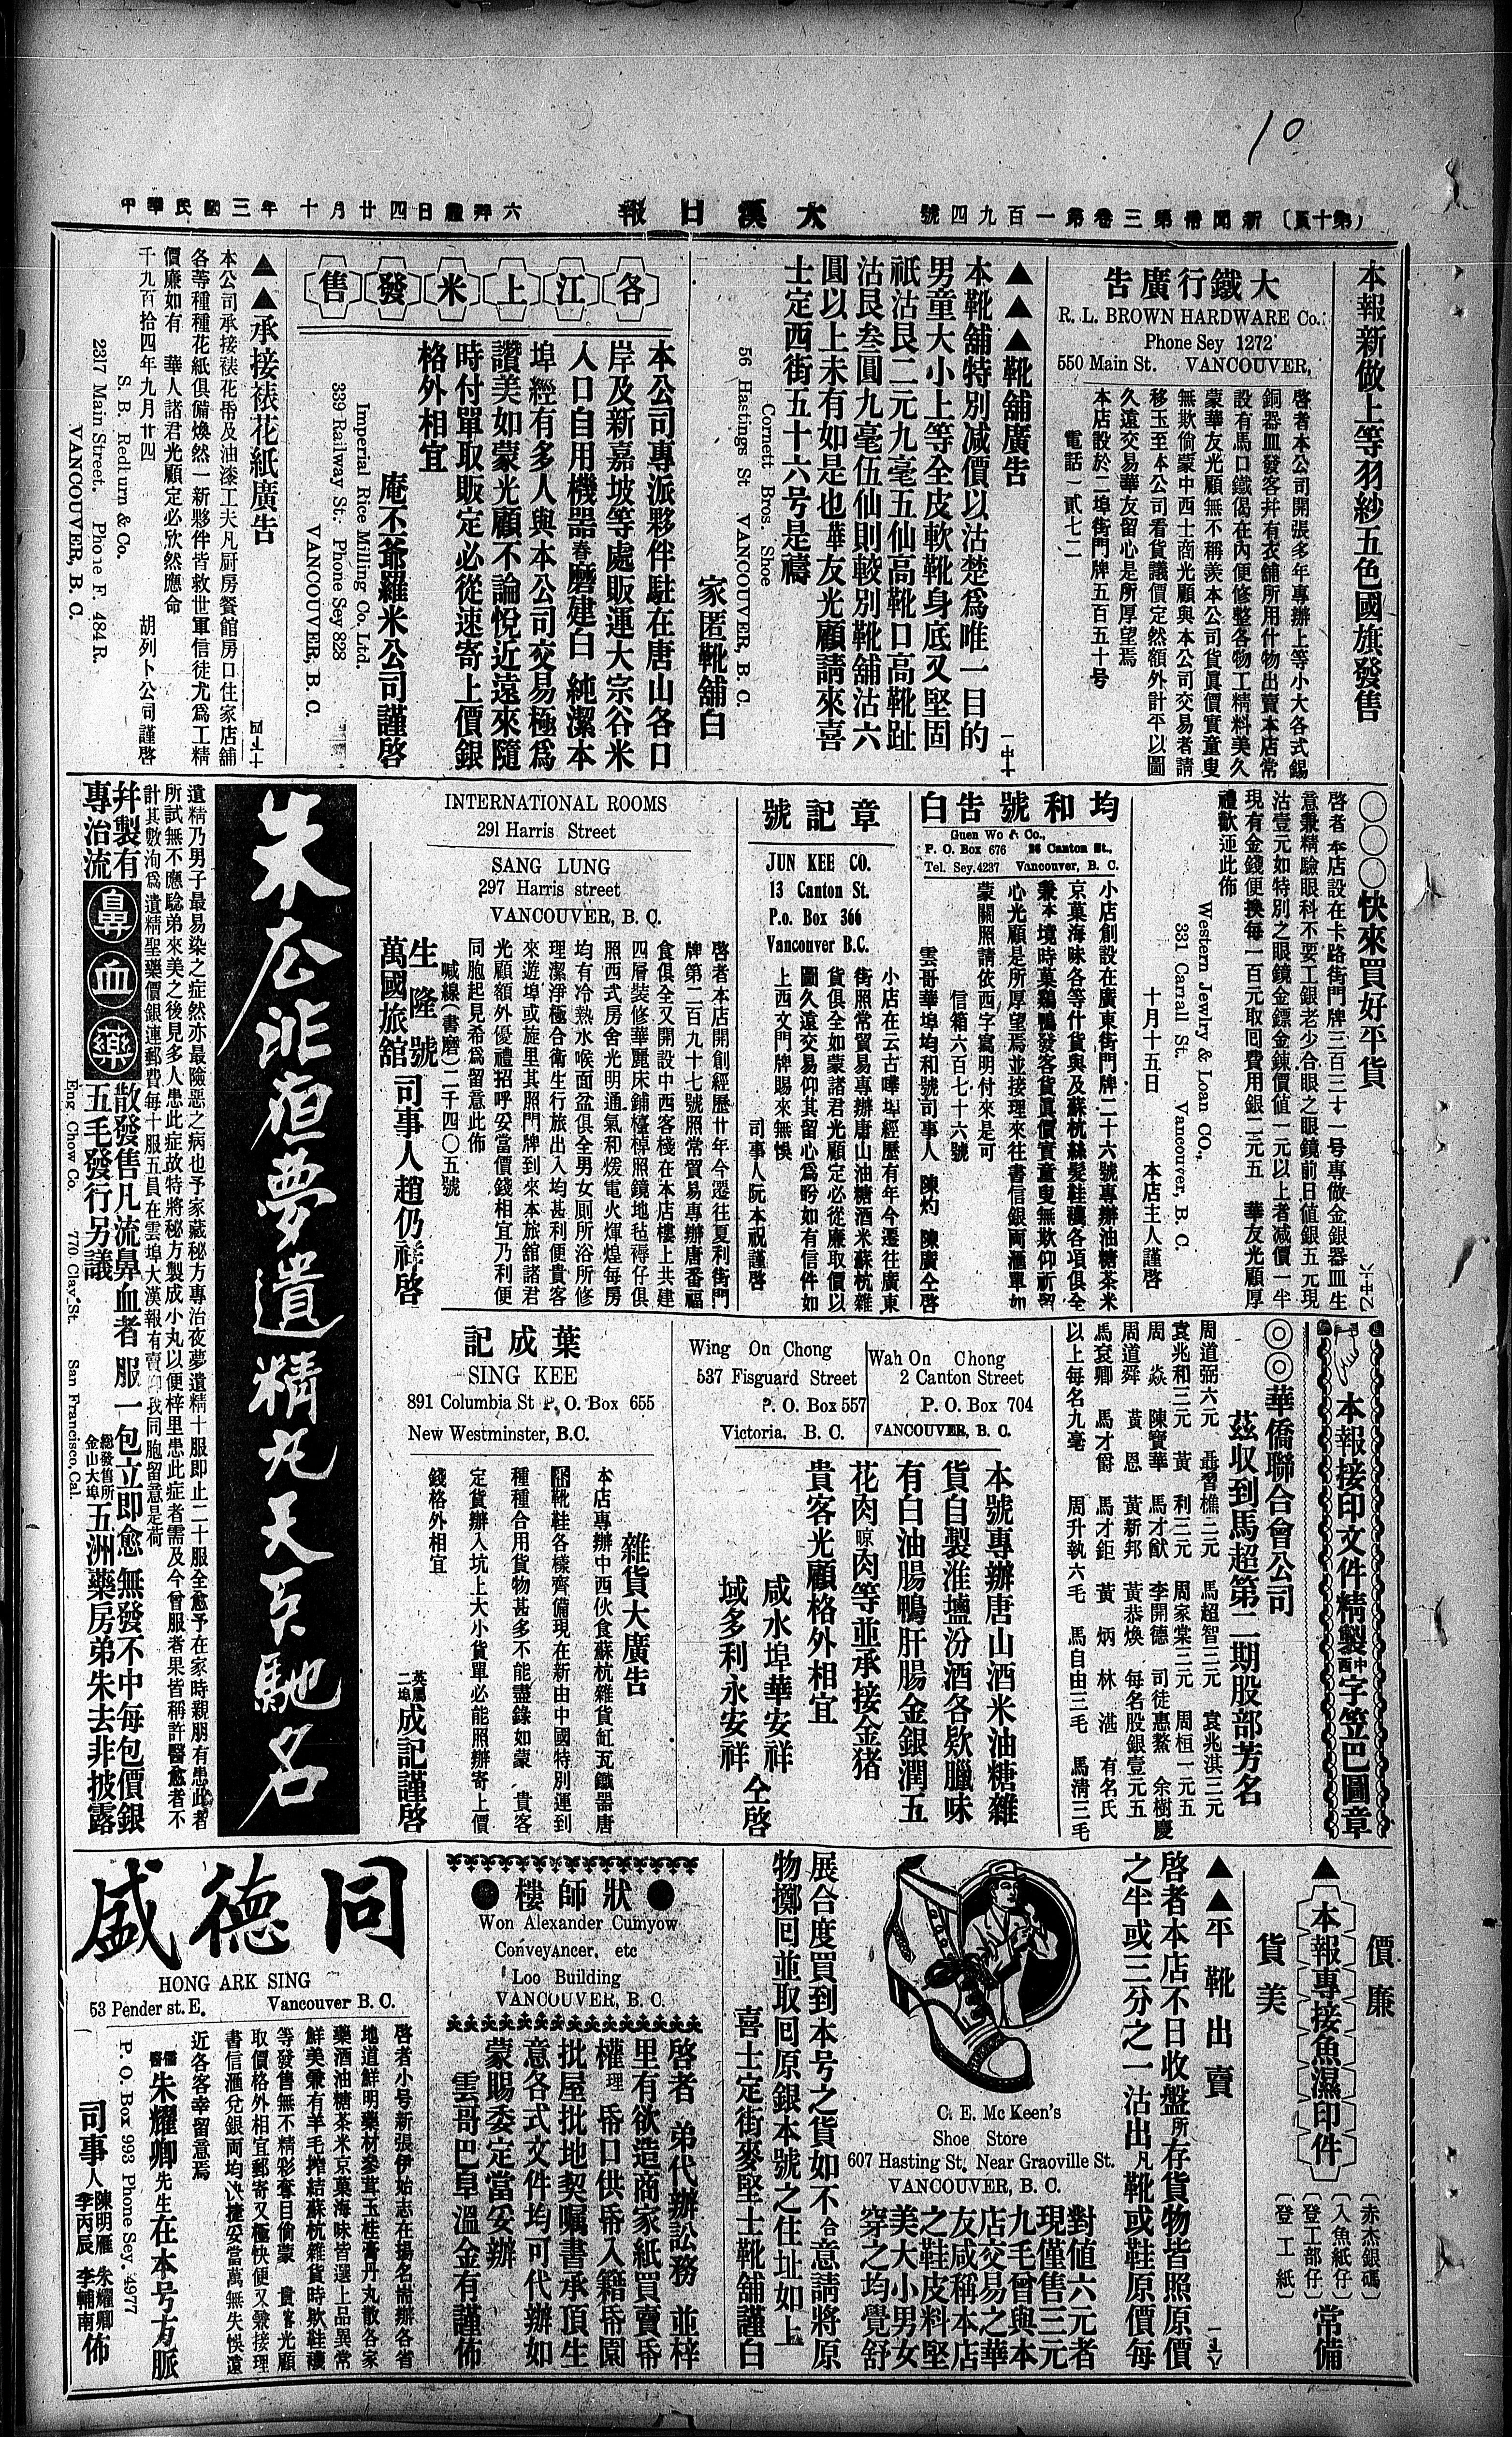 10
(第十頁)　新聞常第三卷第一百九四號
大漢日報
中華民國三年　十月廿四日禮拜六
本報新做上等羽紗五色國旗發售
大鐵行廣告
R. L. BROWN HARDWARE Co.
Phone Sey 1272
550 Main St. VANCOUVER,
啓者本公司開張多年專辦上等小大各式錫
銅器皿發客幷有衣舖所用什物出賣本店常
設有馬口鐵偈在內便修整各物工精料美久
蒙華友光顧無不稱羨本公司貨眞價實童叟
無欺倘蒙中西士商光顧與本公司交易者請
移玉至本公司看貨議價定然額外計平以圖
久遠交易華友留心是所厚望焉
本店設於二埠街門牌五百五十号
電話一貳七二
▲▲▲靴舖廣告
本靴舖特別减價以沽楚爲唯一目的
男童大小上等全皮軟靴身底又堅固
祇沽艮二元九毫五仙高靴口高靴趾
沽艮叁圓九毫伍仙則較別靴舖沽六
圓以上未有如是也華友光顧請來喜
士定西街五十六号是禱
Cornett Bros. Shoe
56 Hastings St VANCOUVER, B. C.
家匿靴舖白
各江上米發售
本公司專派夥伴駐在唐山各口
岸及新嘉坡等處販運大宗谷米
入口自用機器舂磨建白 純潔本
埠經有多人與本公司交易極爲
讚美如蒙光顧不論悅近遠來隨
時付單取販定必從速寄上價銀
格外相宜
庵丕爺羅米公司謹啓
Imperial Rice Milling Co. Ltd.
339 Railway St. Phone Sey 828
VANCOUVER, B. C.
▲▲承接裱花紙廣告
本公司承接裱花帋及油漆工夫凡厨房餐館房口住家店舖
各等種種花紙俱備煥然一新夥伴皆救世軍信徒尤爲工精
價廉如有　華人諸君光顧定必欣然應命
千九百拾四年九月廿四　胡列卜公司謹啓
S. B. Redburn & Co.
2317 Main Street. Phone F. 484 R.
VANCOUVER, B. C.
○○○快來買好平貨
啓者本店設在卡路街門牌三百三十一号專做金銀器皿生
意兼精驗眼科不要工銀老少合眼之眼鏡前日值銀五元現
沽壹元如特別之眼鏡金鏢金鍊價值一元以上者减價一半
現有金錢便換每一百元取囘費用銀二元五　華友光顧厚
禮歡迎此佈
Western Jewlry & Loan CO.,
331 Carrall St. Vancouver, B. C.
十月十五日　本店主人謹啓
均和號告白
Guen Wo & Co.,
P. O. Box 676 26 Canton St.,
Tel. Sey. 4237 Vancouver, B. C.
小店創設在廣東街門牌二十六號專辦油糖茶米
京菓海味各等什貨與及蘇杭絲髮鞋襪各項俱全
兼本境時菓鷄鴨發客貨眞價實童叟無欺仰祈留
心光顧是所厚望焉並接理來往書信銀両滙單如
蒙關照請依西字寫明付來是可
信箱六百七十六號
雲哥華埠均和號司事人　陳灼　陳廣仝啓
章記號
JUN KEE CO.
13 Canton St.
P.o. Box 366
Vancouver B.C.
小店在云古嘩埠經歷有年今遷往廣東
街照常貿易專辦唐山油糖酒米蘇杭雜
貨俱全如蒙諸君光顧定必從廉取價以
圖久遠交易仰其留心爲盼如有信件如
上西文門牌賜來無悞
司事人阮本祝謹啓
INTERNATIONAL ROOMS
291 Harris Street
SANG LUNG
297 Harris street
VANCOUVER, B. C.
啓者本店開創經歷廿年今遷往夏利街門
牌第二百九十七號照常貿易專辦唐番福
食俱全又開設中西客棧在本店樓上共建
四層裝修華麗床鋪檯椅照鏡地毡褥仔俱
照西式房舍光明通氣和煖電火煇煌每房
均有冷熱水喉面盆俱全男女厠所浴所修
理潔淨極合衛生行旅出入均甚利便貴客
來遊埠或旋里其照門牌到來本旅舘諸君
光顧額外優禮招呼妥當價錢相宜乃利便
同胞起見希爲留意此佈
喊線(書磨)二千四〇五號
生隆號
萬國旅舘
司事人趙仍祥啓
朱公非洹夢遺精丸天下馳名
遺精乃男子最易染之症然亦最險惡之病也予家藏秘方專治夜夢遺精十服即止二十服全愈予在家時親朋有患此者
所試無不應騐弟來美之後見多人患此症故特將秘方製成小丸以便梓里患此症者需及今曾服者果皆稱許醫愈者不
計其數洵爲遺精聖藥價銀連郵費每十服五員在雲埠大漢報有賣仰我同胞留意是荷
幷製有
專治流
鼻血藥
散發售凡流鼻血者服一包立即愈無發不中每包價銀
五毛發行另議
總發售所
金山大埠
五洲藥房弟朱去非披露
Eng Chow Co. 770 Clay St. San Francisco, Cal.
本報接印文件精製中西字笠巴圖章
◎◎華僑聯合會公司
茲收到馬超第二期股部芳名
周道弼六元　聶習樵二元　馬超智三元　袁兆淇三元
袁兆和三元　黃　利三元　周家棠三元　周桓一元五
周　焱　陳寶華　馬才猷　李開德　司徒惠鰲　余樹慶
周道舜　黃　恩　黃新邦　黃恭煥　每名股銀壹元五
馬袞卿　馬才爵　馬才鉅　黃　炳　林　湛　有名氏
以上每名九毫　周升執六毛　馬自由三毛　馬淸三毛
Wing On Chong
537 Fisguard Street
P. O. Box 557
Victoria, B. C.
Wah On Chong
2 Canton Street
P. O. Box 704
VANCOUVER, B. C.
本號專辦唐山酒米油糖雜
貨自製淮壚汾酒各欵臘味
有白油腸鴨肝腸金銀潤五
花肉晾肉等並承接金猪
貴客光顧格外相宜
咸水埠華安祥
域多利永安祥
仝啓
葉成記
SING KEE
891 Columbia St P. O. Box 655
New Westminster, B.C.
雜貨大廣告
本店專辦中西伙食蘇杭雜貨缸瓦鐵器唐
靴鞋各樣齊備現在新由中國特別運到
種種合用貨物甚多不能盡錄如蒙　貴客
定貨辦入坑上大小貨單必能照辦寄上價
錢格外相宜
英屬
二埠
成記謹啓
價廉
▲本報專接魚濕印件
貨美
(赤杰銀碼)
(入魚紙仔)
(登工部仔)
(登工紙)
常備
▲▲平靴出賣
啓者本店不日收盤所存貨物皆照原價
之半或三分之一沽出凡靴或鞋原價每
對值六元者
現僅售三元
九毛曾與本
店交易之華
友咸稱本店
之鞋皮料堅
美大小男女
穿之均覺舒
C. E. Mc Keen's
Shoe Store
607 Hasting St. Near Graoville St.
VANCOUVER, B. C.
展合度買到本号之貨如不合意請將原
物擲囘並取囘原銀本號之住址如上
喜士定街麥堅士靴舖謹白
●狀師樓●
Won Alexander Cumyow
Conveyancer, etc
Loo Building
VANCOUVER, B. C.
啓者　弟代辦訟務　並梓
里有欲造商家紙買賣帋
權理　帋口供帋入籍帋園
批屋批地契囑書承頂生
意各式文件均可代辦如
蒙賜委定當妥辦
雲哥巴阜　溫金有謹佈
同德盛
HONG ARK SING
53 Pender st. E. Vancouver B. C.
啓者小号新張伊始志在揚名耑辦各省
地道鮮明藥材參茸玉桂膏丹丸散各家
藥酒油糖茶米京菓海味皆選上品異常
鮮美兼有羊毛搾結蘇杭雜貨時欵鞋襪
等發售無不精彩奪目倘蒙　貴客光顧
取價格外相宜郵寄又極快便又兼接理
書信滙兌銀両均快捷妥當萬無失悞遠
近各客幸留意焉
儒醫朱耀卿先生在本号方脈
P. O. Box 993 Phone Sey. 4977
司事人陳明雁　朱耀卿
李丙辰　李輔南
佈